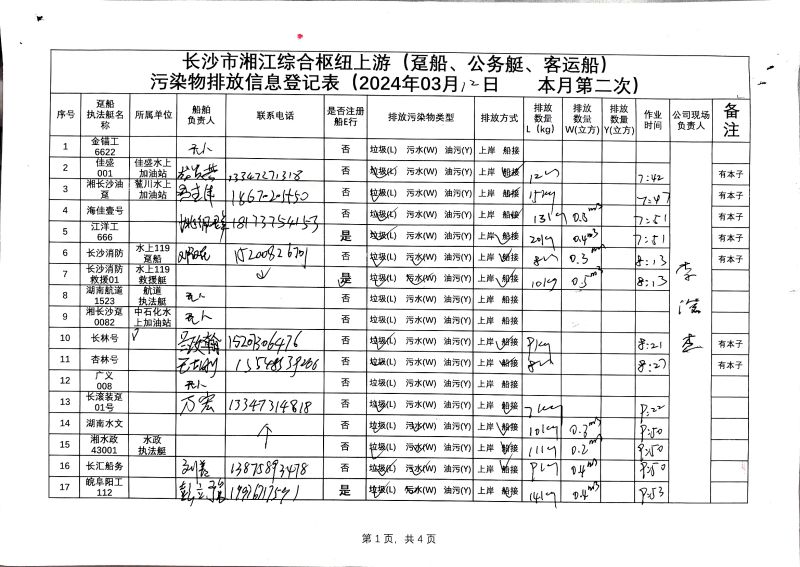 长沙市湘江综合枢纽上游（趸船、公务艇、客运船）
污染物排放信息登记表（2024年03月12日 本月第二次）
序号 趸船执法艇名称 所属单位 船舶负责人 联系电话 是否注册船E行 排放污染物类型 排放方式 排放数量L（kg） 排放数量W(立方) 排放数量Y(立方) 作业时间 公司现场负责人 备注
1 金锚工6622 无人 否 垃圾(L) 污水(W) 油污(Y) 上岸 船接
2 佳盛001 佳盛水上加油站 13347271318 否 垃圾(L) 污水(W) 油污(Y) 上岸 船接 12kg 7:42 有本子
3 湘长沙油趸 鹭川水上加油站 否 垃圾(L) 污水(W) 油污(Y) 上岸 船接 15kg 7:47 有本子
4 海佳壹号 18173754153 否 垃圾(L) 污水(W) 油污(Y) 上岸 船接 13kg 0.5m3 7:51 有本子
5 江洋工666 是 垃圾(L) 污水(W) 油污(Y) 上岸 船接 20kg 0.4m3 7:51 有本子
6 长沙消防 水上119趸船 15200826701 否 垃圾(L) 污水(W) 油污(Y) 上岸 船接 8kg 0.3m3 8:13 有本子
7 长沙消防救援01 水上119救援艇 ↓ 是 垃圾(L) 污水(W) 油污(Y) 上岸 船接 10kg 0.5m3 8:13
8 湖南航道1523 航道执法艇 无人 否 垃圾(L) 污水(W) 油污(Y) 上岸 船接
9 湘长沙趸0082 中石化水上加油站 无人 否 垃圾(L) 污水(W) 油污(Y) 上岸 船接
10 长林号 1520306476 否 垃圾(L) 污水(W) 油污(Y) 上岸 船接 9kg 8:21 有本子
11 杏林号 否 垃圾(L) 污水(W) 油污(Y) 上岸 船接 8kg 8:27 有本子
12 广义008 无人 否 垃圾(L) 污水(W) 油污(Y) 上岸 船接
13 长滚装趸01号 万宏 13347314818 否 垃圾(L) 污水(W) 油污(Y) 上岸 船接 7kg 9:22
14 湖南水文 ↑ 否 垃圾(L) 污水(W) 油污(Y) 上岸 船接 10kg 0.3m3 9:50
15 湘水政43001 水政执法艇 否 垃圾(L) 污水(W) 油污(Y) 上岸 船接 11kg 0.2m3 9:50
16 长汇船务 13875893478 否 垃圾(L) 污水(W) 油污(Y) 上岸 船接 9kg 0.4m3 9:50
17 皖阜阳工112 是 垃圾(L) 污水(W) 油污(Y) 上岸 船接 14kg 0.4m3 9:53
第 1 页，共 4 页